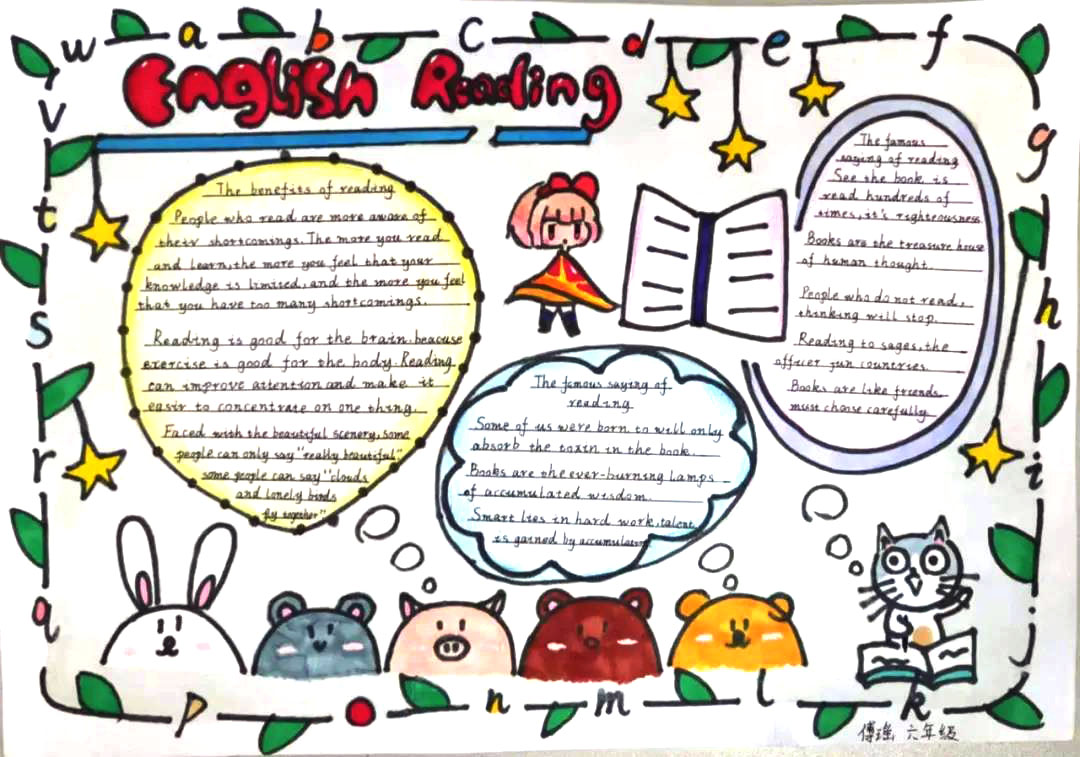 w a b c d e f
g h i j
k l m n o p
q r s t v
English Reading
The benefits of reading
People who read are more aware of
their shortcomings. The more you read
and learn, the more you feel that your
knowledge is limited, and the more you feel
that you have too many shortcomings.
Reading is good for the brain, beacuse
exercise is good for the body. Reading
can improve attention and make it
easir to concentrate on one thing.
Faced with the beautiful scenery, some
people can only say "really beautiful",
some people can say "clouds
and lonely birds
fly together"
The famous saying of
reading
Some of us were born to will only
absorb the toxin in the book.
Books are the ever-burning lamps
of accumulated wisdom.
Smart lies in hard work, talent
is gained by accumulation
The famous
saying of reading
See the book is
read hundreds of
times, it's righteousness
Books are the treasure house
of human thought.
People who do not read,
thinking will stop.
Reading to sages, the
officer jun countries.
Books are like friends,
must choose carefully
傅瑶 六年级